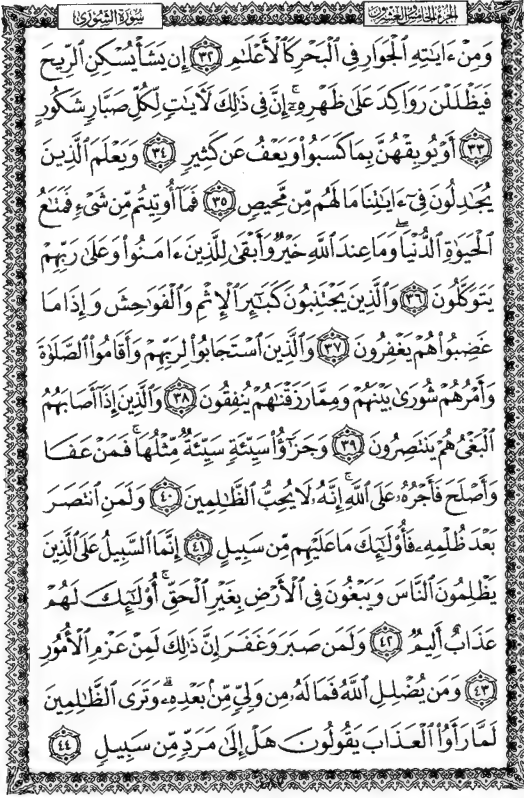 الجزء الخامس والعشرون سورة الشورى
وَمِنْ ءَايَٰتِهِ ٱلْجَوَارِ فِى ٱلْبَحْرِ كَٱلْأَعْلَٰمِ ٣٢ إِن يَشَأْ يُسْكِنِ ٱلرِّيحَ
فَيَظْلَلْنَ رَوَاكِدَ عَلَىٰ ظَهْرِهِۦٓ ۚ إِنَّ فِى ذَٰلِكَ لَءَايَٰتٍ لِّكُلِّ صَبَّارٍ شَكُورٍ
٣٣ أَوْ يُوبِقْهُنَّ بِمَا كَسَبُوا۟ وَيَعْفُ عَن كَثِيرٍ ٣٤ وَيَعْلَمَ ٱلَّذِينَ
يُجَٰدِلُونَ فِىٓ ءَايَٰتِنَا مَا لَهُم مِّن مَّحِيصٍ ٣٥ فَمَآ أُوتِيتُم مِّن شَىْءٍ فَمَتَٰعُ
ٱلْحَيَوٰةِ ٱلدُّنْيَا ۖ وَمَا عِندَ ٱللَّهِ خَيْرٌ وَأَبْقَىٰ لِلَّذِينَ ءَامَنُوا۟ وَعَلَىٰ رَبِّهِمْ
يَتَوَكَّلُونَ ٣٦ وَٱلَّذِينَ يَجْتَنِبُونَ كَبَٰٓئِرَ ٱلْإِثْمِ وَٱلْفَوَٰحِشَ وَإِذَا مَا
غَضِبُوا۟ هُمْ يَغْفِرُونَ ٣٧ وَٱلَّذِينَ ٱسْتَجَابُوا۟ لِرَبِّهِمْ وَأَقَامُوا۟ ٱلصَّلَوٰةَ
وَأَمْرُهُمْ شُورَىٰ بَيْنَهُمْ وَمِمَّا رَزَقْنَٰهُمْ يُنفِقُونَ ٣٨ وَٱلَّذِينَ إِذَآ أَصَابَهُمُ
ٱلْبَغْىُ هُمْ يَنتَصِرُونَ ٣٩ وَجَزَٰٓؤُا۟ سَيِّئَةٍ سَيِّئَةٌ مِّثْلُهَا ۖ فَمَنْ عَفَا
وَأَصْلَحَ فَأَجْرُهُۥ عَلَى ٱللَّهِ ۚ إِنَّهُۥ لَا يُحِبُّ ٱلظَّٰلِمِينَ ٤٠ وَلَمَنِ ٱنتَصَرَ
بَعْدَ ظُلْمِهِۦ فَأُو۟لَٰٓئِكَ مَا عَلَيْهِم مِّن سَبِيلٍ ٤١ إِنَّمَا ٱلسَّبِيلُ عَلَى ٱلَّذِينَ
يَظْلِمُونَ ٱلنَّاسَ وَيَبْغُونَ فِى ٱلْأَرْضِ بِغَيْرِ ٱلْحَقِّ ۚ أُو۟لَٰٓئِكَ لَهُمْ
عَذَابٌ أَلِيمٌ ٤٢ وَلَمَن صَبَرَ وَغَفَرَ إِنَّ ذَٰلِكَ لَمِنْ عَزْمِ ٱلْأُمُورِ
٤٣ وَمَن يُضْلِلِ ٱللَّهُ فَمَا لَهُۥ مِن وَلِىٍّ مِّنۢ بَعْدِهِۦ ۗ وَتَرَى ٱلظَّٰلِمِينَ
لَمَّا رَأَوُا۟ ٱلْعَذَابَ يَقُولُونَ هَلْ إِلَىٰ مَرَدٍّ مِّن سَبِيلٍ ٤٤